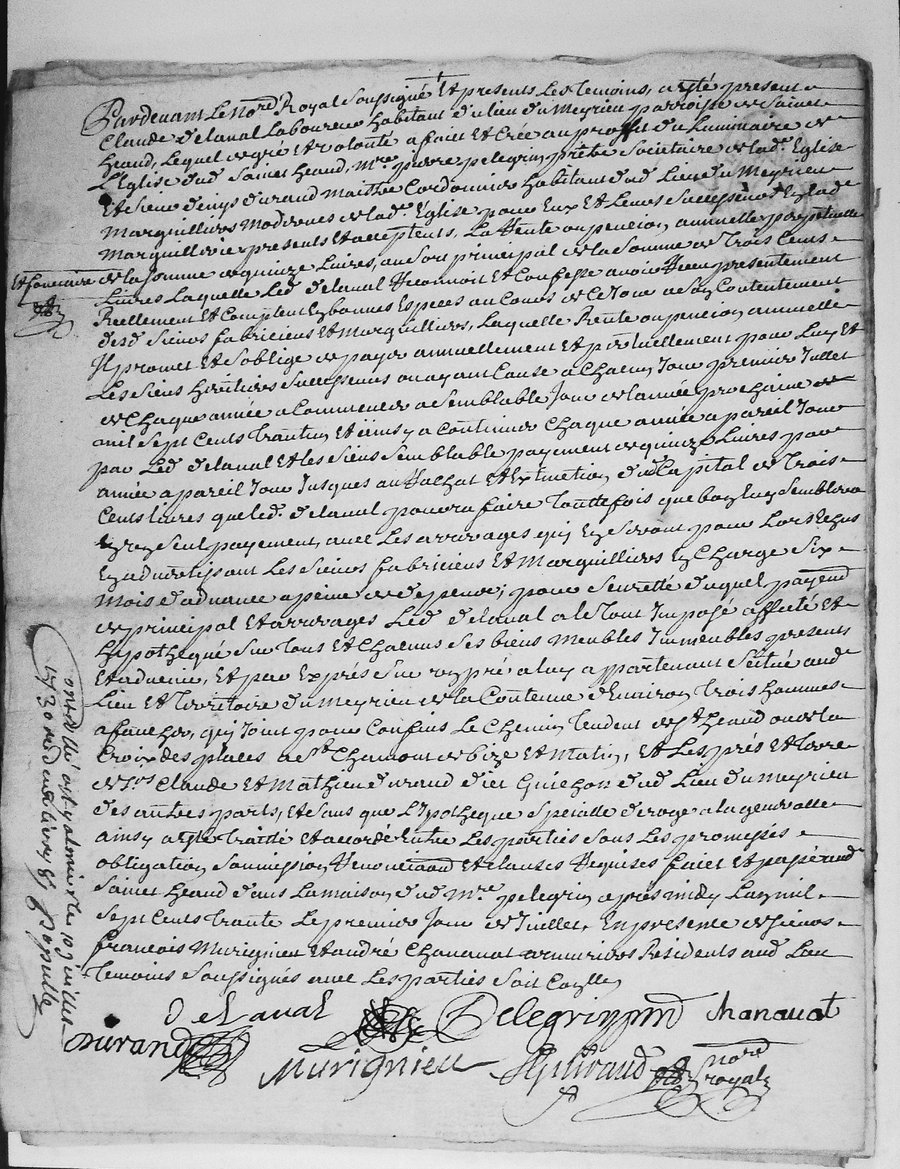 Pardevant Le No.re Royal Soussigné Et presents Les temoins, a esté present
Claude delaval Laboureur habitant du lieu du Meyrieu parroisse de Sainct
heaud, Lequel de gré et volonté a faict Et Crée au proffit du Luminaire de
L'Eglise dud. Sainct heaud, M.re pierre pelegrin prebre Societaire de lad. Eglise
Et Sieur denys durand Maistre Cordonnier habitant dud. Lieu du Meyrieu
Marguilliers Modernes de lad. Eglise pour Eux Et Leurs Successeurs En lad.
Marguillerie presents Et acceptents, La Rente ou pencion annuelle perpetuelle
Et fonciere
de la somme de quinze Livres, au Sort principal de la Somme de Trois Cents
Livres Laquelle Led. delaval Reconnoit Et Confesse avoir Receu presentement
Reellement Et Comptent En bonnes Especes au Cours de Ce Jour a Son Contentement
desd. Sieurs fabriciens Et Marguilliers, Laquelle Rente ou pencion annuelle
Il promet Et S'oblige de payer annuellement Et perpetuellement pour Luy Et
Les Siens heritiers Successeurs ou ayant Cause a Chacun Jour premier Juillet
de Chaque année a Commencer a Semblable Jour de l'année prochaine de
mil Sept Cents trente un Et ainsy a Continuer Chaque année a pareil Jour
par Led. delaval Et les Siens Semblable payement de quinze Livres par
année a pareil Jour Jusques au Rachat Et Extinction dud. Capital de Trois
Cents Livres que led. delaval pourra faire Touttefois que bon Luy Semblera
En Un Seul payement, avec Les arrerages qui En Seront pour Lors Echus
En advertissant Les Sieurs fabriciens Et Marguilliers En Charge Six
Mois d'advance a peine de depens; pour Seuretté duquel payement
de principal Et arrerages Led. delaval a le tout Imposé affecté Et
hypothequé Sur Tous Et Chacuns Ses biens Meubles Immeubles presents
Et advenir, Et par Exprés Sur un pré a luy appartenant Scitué aud.
Lieu Et Territoire du Meyrieu de la Contenue d'Environ Trois hommes
a faucher, qui Joint pour Confins Le Chemin Tendent de St heaud ou de la
Croix des places a St Chamond de bize Et Matin, Et Les prés Et terre
de Srs Claude Et Mathieu durand dict Guichon dud. Lieu du Meyrieu
des autres parts, Et Sans que L'hypotheque Specialle deroge a la generalle
ainsy a esté traitté Et accordé Entre Les parties Sous Les promesses
obligation Soumission Renonciation Et Clauses Requises faict Et passé aud.
Sainct heaud dans La maison dud. M.re pelegrin aprés midy L'an mil
Sept Cents trante Le premier Jour de Juillet, En presence de Sieurs
francois Murignieu Et andré Chanavat armuriers Résidents aud. Lieu
Temoins Soussignés avec Les parties
Delaval
Pelegrin
Chanavat
Durand
Murignieu
no.re
royal